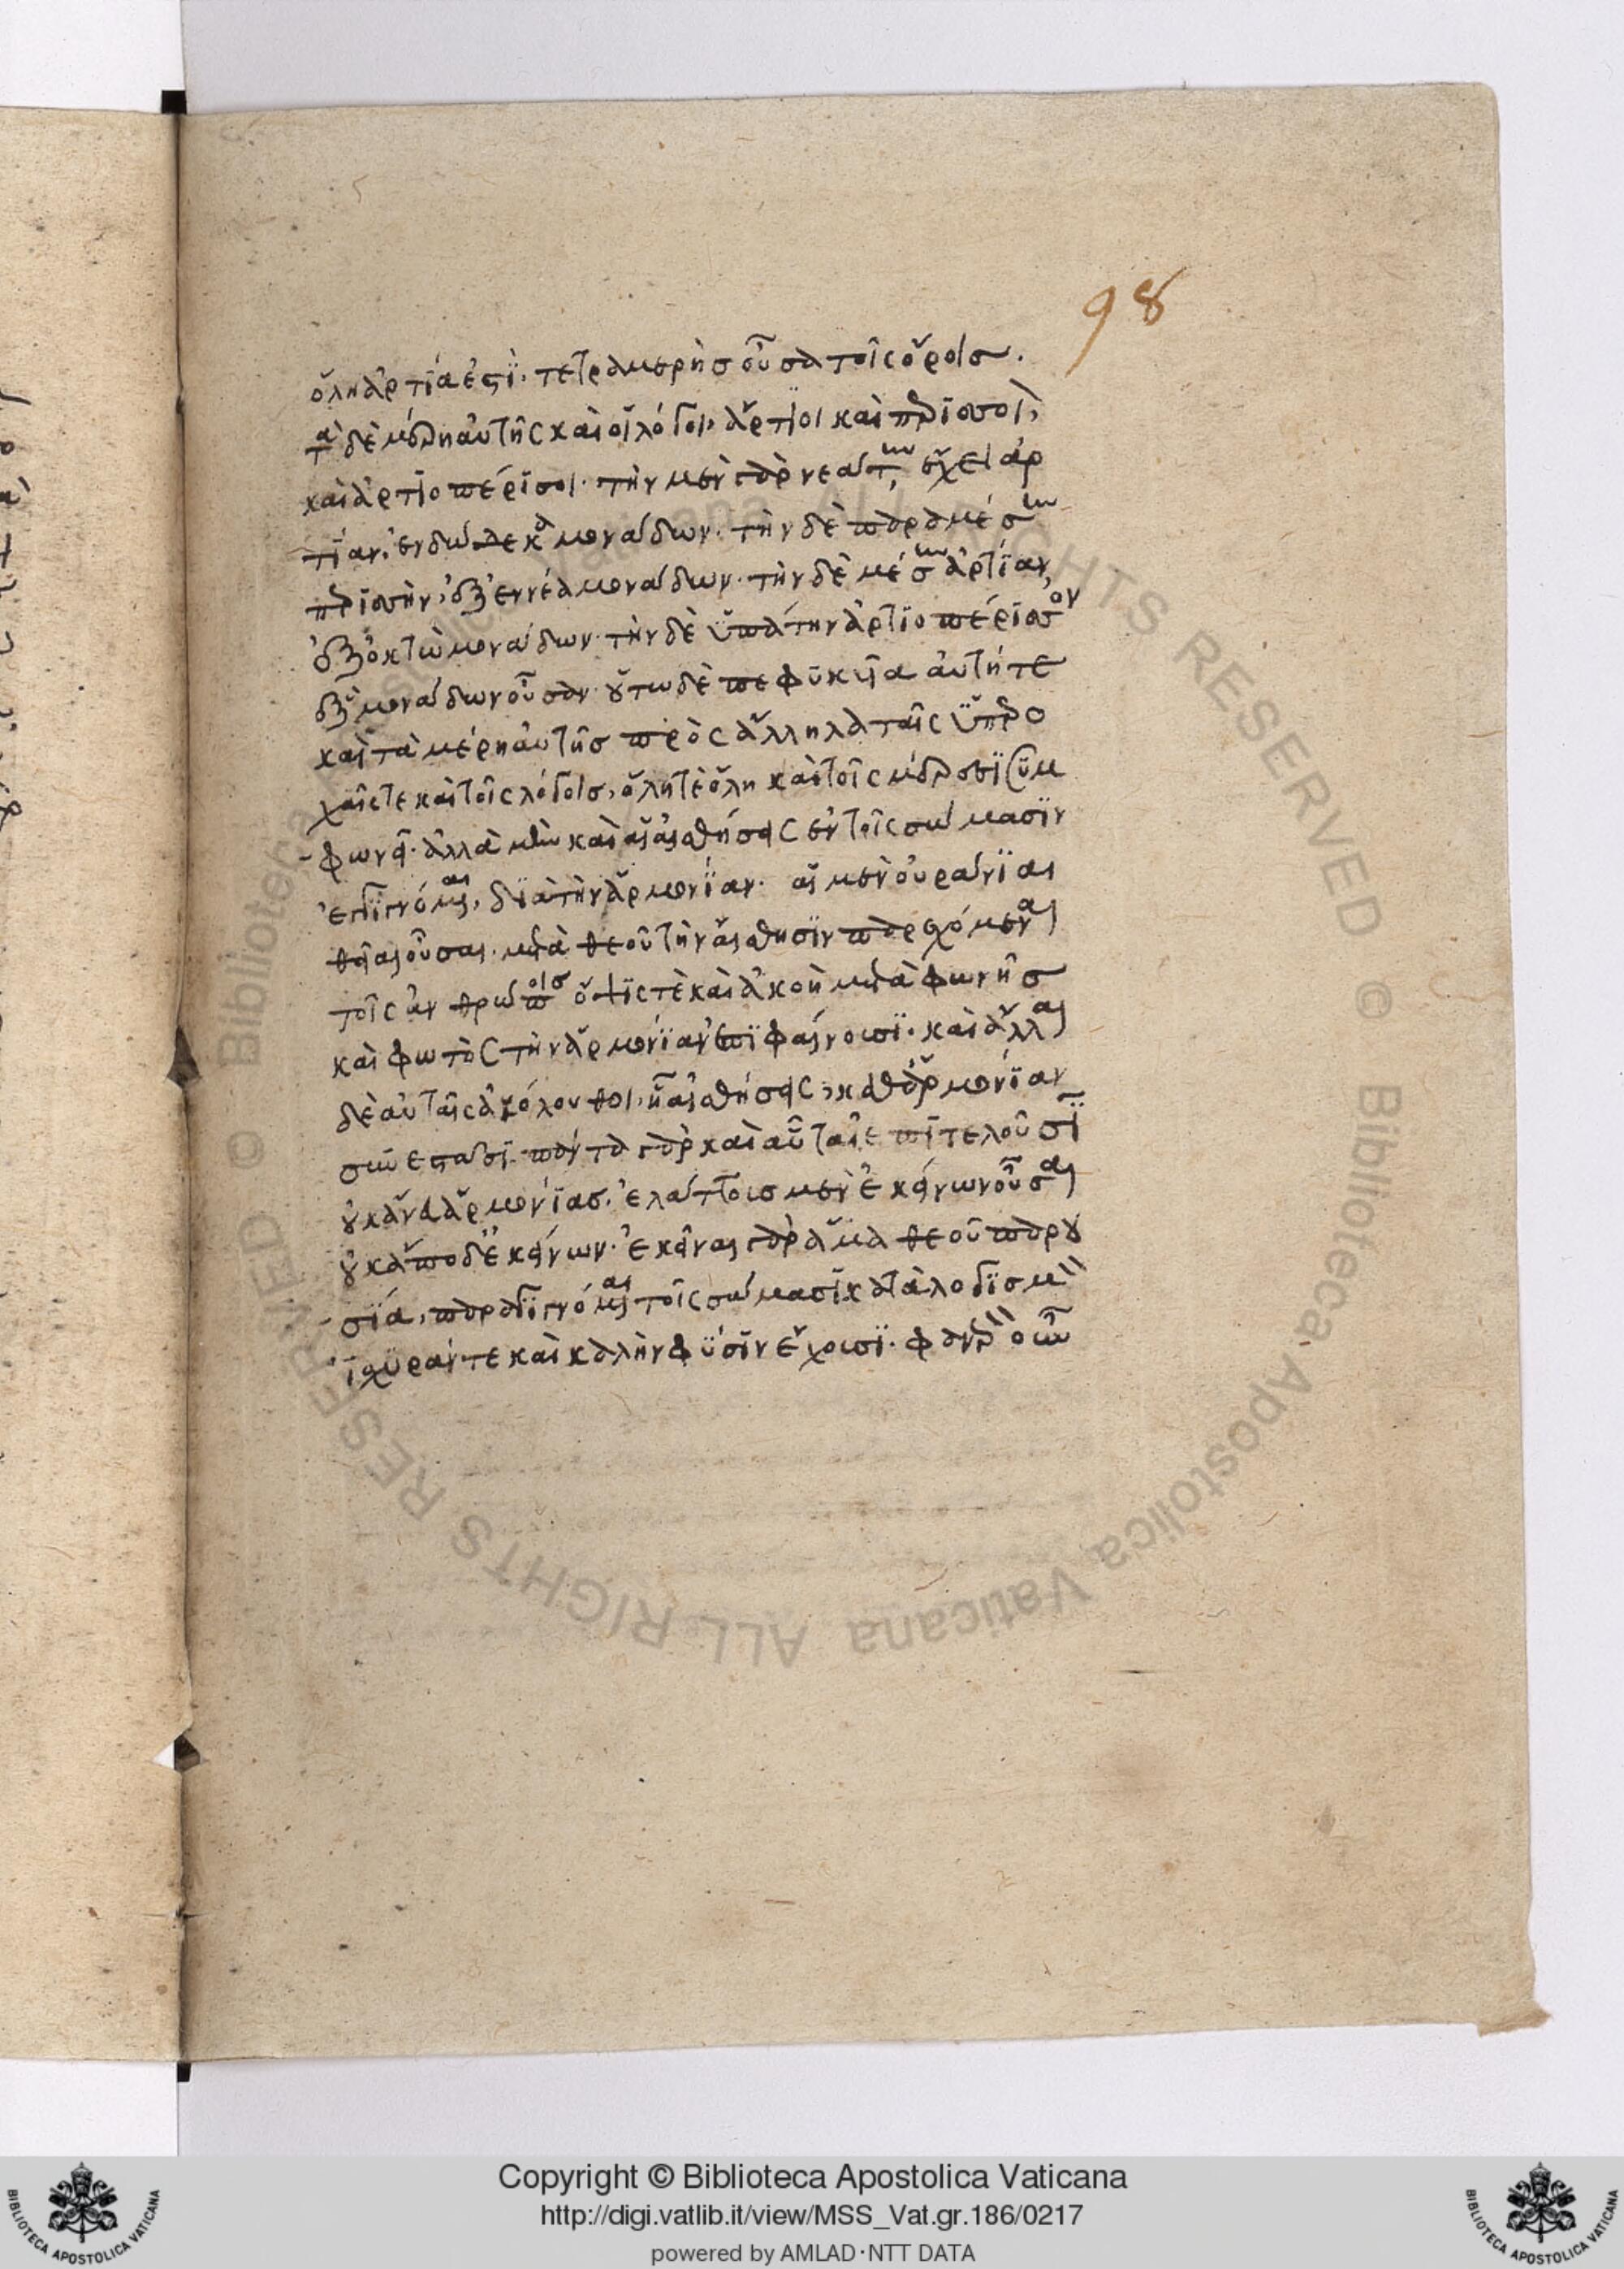 ὅλη ἀρτία ἐστὶ· τετραμερὴς οὖσα τοῖς ὅροις·
τὰ δὲ μέρη αὐτῆς καὶ οἱ λόγοι, ἄρτιοι καὶ περισσοὶ,
καὶ ἀρτιοπέρισσοι· τὴν μὲν γὰρ νεάτην, ἔχει ἀρ
τίαν, ἐν δώδεκα μονάδων· τὴν δὲ παραμέσην
περισσὴν, ἐξ ἐννέα μονάδων· τὴν δὲ μέσην ἀρτίαν,
ἐξ ὀκτὼ μονάδων· τὴν δὲ ὑπάτην ἀρτιοπέρισσον,
ἐξ μονάδων οὖσαν· οὕτω δὲ πεφυκυῖα αὐτή τε
καὶ τὰ μέρη αὐτῆς πρὸς ἄλληλα ταῖς ὑπερο
χαῖς τε καὶ τοῖς λόγοις, ὅλη τὲ ὅλη καὶ τοῖς μέρεσι συμ
φωνεῖ· ἀλλὰ μὴν καὶ αἱ αἰσθήσεις ἐν τοῖς σώμασιν
ἐγγιγνόμεναι, διὰ τὴν ἁρμονίαν· αἱ μὲν οὐράνιαι
θεῖαι οὖσαι· μετὰ θεοῦ τὴν αἴσθησιν παρεχόμεναι
τοῖς ἀνθρώποις ὄψις τὲ καὶ ἀκοὴ μετὰ φωνῆς
καὶ φωτὸς τὴν ἁρμονίαν ἐπιφαίνουσι· καὶ ἄλλαι
δὲ αὐταῖς ἀκόλουθοι, ᾗ αἰσθήσεις, καθ' ἁρμονίαν
συνεστᾶσι· πάντα γὰρ καὶ αὗται ἐπιτελοῦσι
οὐκ ἄνευ ἁρμονίας· ἐλάττους μὲν ἐκείνων οὖσαι
οὐκ ἄπο δ' ἐκείνων· ἐκεῖναι γὰρ ἅμα θεοῦ παρου
σία, παραγιγνόμεναι τοῖς σώμασι κατὰ λογισμὸν
ἰσχυράν τε καὶ καλὴν φύσιν ἔχουσι· φανερὸν οὖν
98
Copyright © Biblioteca Apostolica Vaticana
http://digi.vatlib.it/view/MSS_Vat.gr.186/0217
powered by AMLAD·NTT DATA
BIBLIOTECA APOSTOLICA VATICANA
BIBLIOTECA APOSTOLICA VATICANA
© Biblioteca Apostolica Vaticana ALL RIGHTS RESERVED © Biblioteca Apostolica Vaticana ALL RIGHTS RESERVED